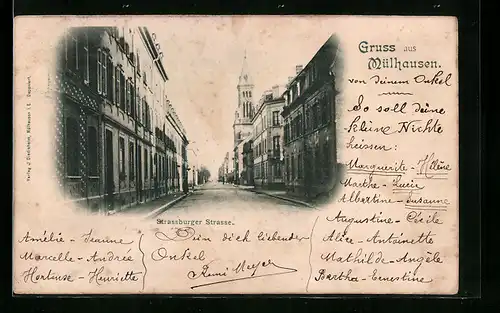 Gruss aus
Mülhausen.
von deinem Onkel
So soll deine
kleine Nichte
heissen:
Marguerite - Hélène
Marthe - Lucie
Albertine - Susanne
Augustine - Cécile
Alice - Antoinette
Mathilde - Angèle
Bertha - Ernestine
Strassburger Strasse.
Amélie - Jeanne
Marcelle - Andrée
Hortense - Henriette
Dein dich liebender
Onkel
Rémi Meyer
Verlag J. Mülhausen i. E.